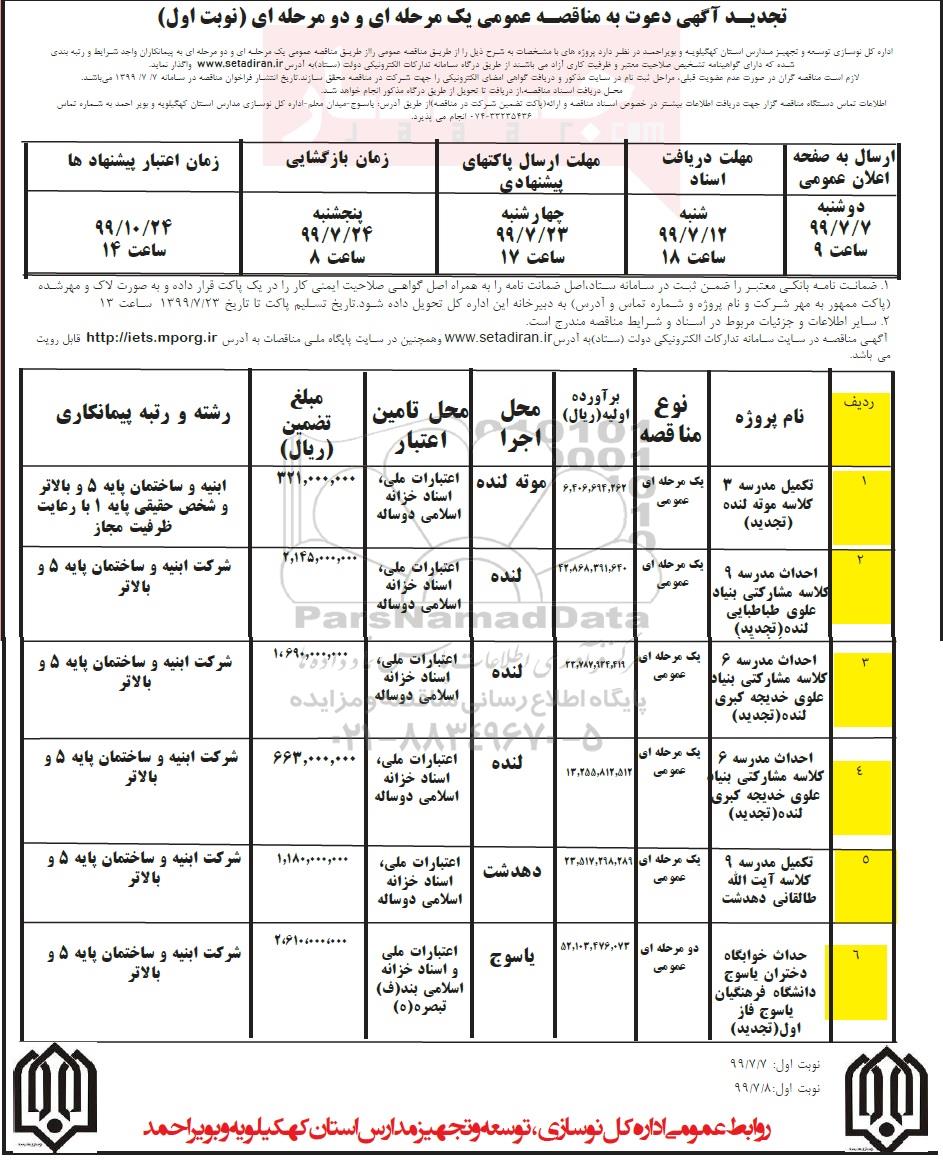 تجدیـد آگهی دعوت به مناقصـه عمومی یک مرحله ای و دو مرحله ای (نوبت اول)
اداره کل نوسازی توسعه و تجهیـز مـدارس استـان کهگیلویـه و بویراحمـد در نظـر دارد پروژه های با مشـخصات به شرح ذیل را از طریـق مناقصه عمومی رااز طریق مناقصه عمومی یک مرحلـه ای و دو مرحله ای به پیمانکاران واجد شـرایط و رتبه بندی
شـده که دارای گواهینامه تشخیص صلاحیت معتبر و ظرفیت کاری آزاد می باشند از طریق درگاه سامانه تدارکات الکترونیکی دولت (ستـاد)به آدرس www.setadiran.ir واگذار نماید.
لازم اسـت مناقصه گران در صورت عدم عضویت قبلی، مراحل ثبت نام در سـایت مذکور و دریافت گواهی امضای الکترونیکی را جهت شرکت در مناقصه محقق سازند.تاریخ انتشـار فراخوان مناقصه در سـامانه ۷/ ۷/ ۱۳۹۹ می‌باشـد.
محـل دریافـت اسنـاد مناقصـه،از دریافـت تا تحویل از طریـق درگاه مذکور انجام خواهد شد.
اطلاعات تماس دستگاه مناقصه گزار جهت دریافت اطلاعات بیشتر در خصوص اسناد مناقصه و ارائه(پاکت تضمین شرکت در مناقصه)از طریق آدرس: یاسوج-میدان معلم-اداره کل نوسازی مدارس استان کهگیلویه و بویر احمد به شماره تماس
۰۷۴-۳۳۲۳۵۴۳۶ انجام می پذیرد.
ارسال به صفحه اعلان عمومی
مهلت دریافت اسناد
مهلت ارسال پاکتهای پیشنهادی
زمان بازگشایی
زمان اعتبار پیشنهاد ها
دوشنبه ۹۹/۷/۷ ساعت ۹
شنبه ۹۹/۷/۱۲ ساعت ۱۸
چهارشنبه ۹۹/۷/۲۳ ساعت ۱۷
پنجشنبه ۹۹/۷/۲۴ ساعت ۸
۹۹/۱۰/۲۴ ساعت ۱۴
۱. ضمانت نامـه بانکـی معتبـر را ضمـن ثبـت در سامانه ستـاد،اصل ضمانت نامه را به همراه اصل گواهـی صلاحیت ایمنی کار را در یک پاکت قرار داده و به صورت لاک و مهرشده
(پاکت ممهور به مهر شرکت و نام پروژه و شماره تماس و آدرس) به دبیرخانه این اداره کل تحویل داده شود.تاریخ تسلیم پاکت تا تاریخ ۱۳۹۹/۷/۲۳ ساعت ۱۳
۲. سایر اطلاعات و جزئیات مربوط در اسناد و شرایط مناقصه مندرج است.
آگهـی مناقصـه در سایـت سامانه تدارکات الکترونیکی دولت (ستاد)به آدرس www.setadiran.ir وهمچنین در سایت پایگاه ملـی مناقصات به آدرس http://iets.mporg.ir قابل رویت
می باشد.
ردیف
نام پروژه
نوع مناقصه
برآورده اولیه(ریال)
محل اجرا
محل تامین اعتبار
مبلغ تضمین (ریال)
رشته و رتبه پیمانکاری
۱
تکمیل مدرسه ۳ کلاسه موته لنده (تجدید)
یک مرحله ای عمومی
۶,۴۰۶,۶۹۴,۲۶۲
موته لنده
اعتبارات ملی، اسناد خزانه اسلامی دوساله
۳۲۱,۰۰۰,۰۰۰
ابنیه و ساختمان پایه ۵ و بالاتر و شخص حقیقی پایه ۱ با رعایت ظرفیت مجاز
۲
احداث مدرسه ۹ کلاسه مشارکتی بنیاد علوی طباطبایی لنده(تجدید)
یک مرحله ای عمومی
۴۲,۸۶۸,۳۹۱,۶۴۰
لنده
اعتبارات ملی، اسناد خزانه اسلامی دوساله
۲,۱۴۵,۰۰۰,۰۰۰
شرکت ابنیه و ساختمان پایه ۵ و بالاتر
۳
احداث مدرسه ۶ کلاسه مشارکتی بنیاد علوی خدیجه کبری لنده(تجدید)
یک مرحله ای عمومی
لنده
اعتبارات ملی، اسناد خزانه اسلامی دوساله
۱,۶۹۰,۰۰۰,۰۰۰
شرکت ابنیه و ساختمان پایه ۵ و بالاتر
۴
احداث مدرسه ۶ کلاسه مشارکتی بنیاد علوی خدیجه کبری لنده(تجدید)
یک مرحله ای عمومی
۱۳,۲۵۵,۸۱۲,۵۱۲
لنده
اعتبارات ملی، اسناد خزانه اسلامی دوساله
۶۶۳,۰۰۰,۰۰۰
شرکت ابنیه و ساختمان پایه ۵ و بالاتر
۵
تکمیل مدرسه ۹ کلاسه آیت الله طالقانی دهدشت
یک مرحله ای عمومی
۲۳,۵۱۷,۲۹۸,۲۸۹
دهدشت
اعتبارات ملی، اسناد خزانه اسلامی دوساله
۱,۱۸۰,۰۰۰,۰۰۰
شرکت ابنیه و ساختمان پایه ۵ و بالاتر
۶
حداث خوابگاه دختران یاسوج دانشگاه فرهنگیان یاسوج فاز اول(تجدید)
دو مرحله ای عمومی
۵۲,۱۰۳,۴۷۶,۰۷۳
یاسوج
اعتبارات ملی و اسناد خزانه اسلامی بند(ف) تبصره(ه)
۲,۶۱۰,۰۰۰,۰۰۰
شرکت ابنیه و ساختمان پایه ۵ و بالاتر
ParsNamadData
پایگاه اطلاع رسانی مناقصه و مزایده
۰۲۱-۸۸۳۴۹۶۷۰-۵
نوبت اول: ۹۹/۷/۷
نوبت اول: ۹۹/۷/۸
روابط عمومی اداره کل نوسازی، توسعه و تجهیز مدارس استان کهکیلویه و بویراحمد